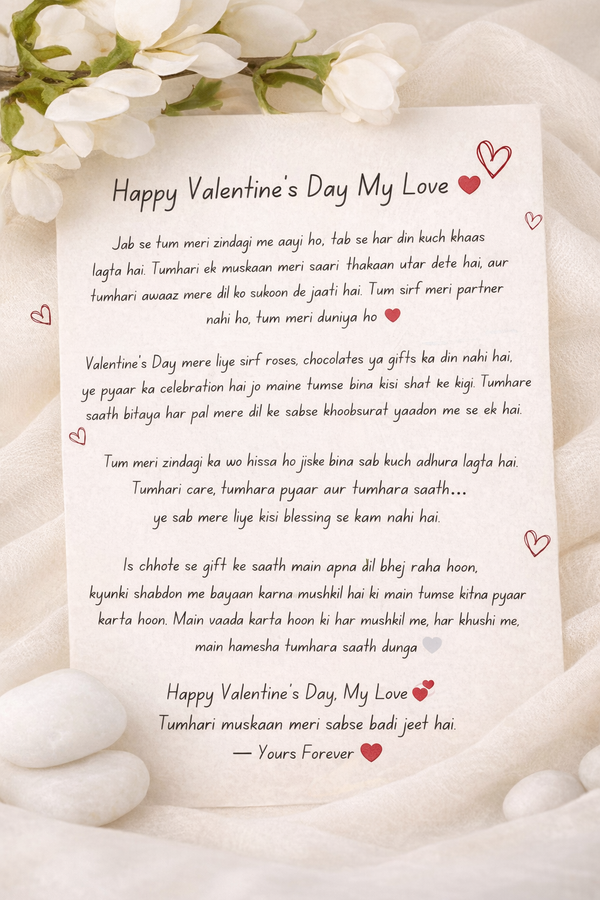 Happy Valentine's Day My Love ❤️
Jab se tum meri zindagi me aayi ho, tab se har din kuch khaas
lagta hai. Tumhari ek muskaan meri saari thakaan utar dete hai, aur
tumhari awaaz mere dil ko sukoon de jaati hai. Tum sirf meri partner
nahi ho, tum meri duniya ho ❤️
Valentine's Day mere liye sirf roses, chocolates ya gifts ka din nahi hai,
ye pyaar ka celebration hai jo maine tumse bina kisi shat ke kigi. Tumhare
saath bitaya har pal mere dil ke sabse khoobsurat yaadon me se ek hai.
Tum meri zindagi ka wo hissa ho jiske bina sab kuch adhura lagta hai.
Tumhari care, tumhara pyaar aur tumhara saath...
ye sab mere liye kisi blessing se kam nahi hai.
Is chhote se gift ke saath main apna dil bhej raha hoon,
kyunki shabdon me bayaan karna mushkil hai ki main tumse kitna pyaar
karta hoon. Main vaada karta hoon ki har mushkil me, har khushi me,
main hamesha tumhara saath dunga 🤍
Happy Valentine's Day, My Love 💕
Tumhari muskaan meri sabse badi jeet hai.
— Yours Forever ❤️